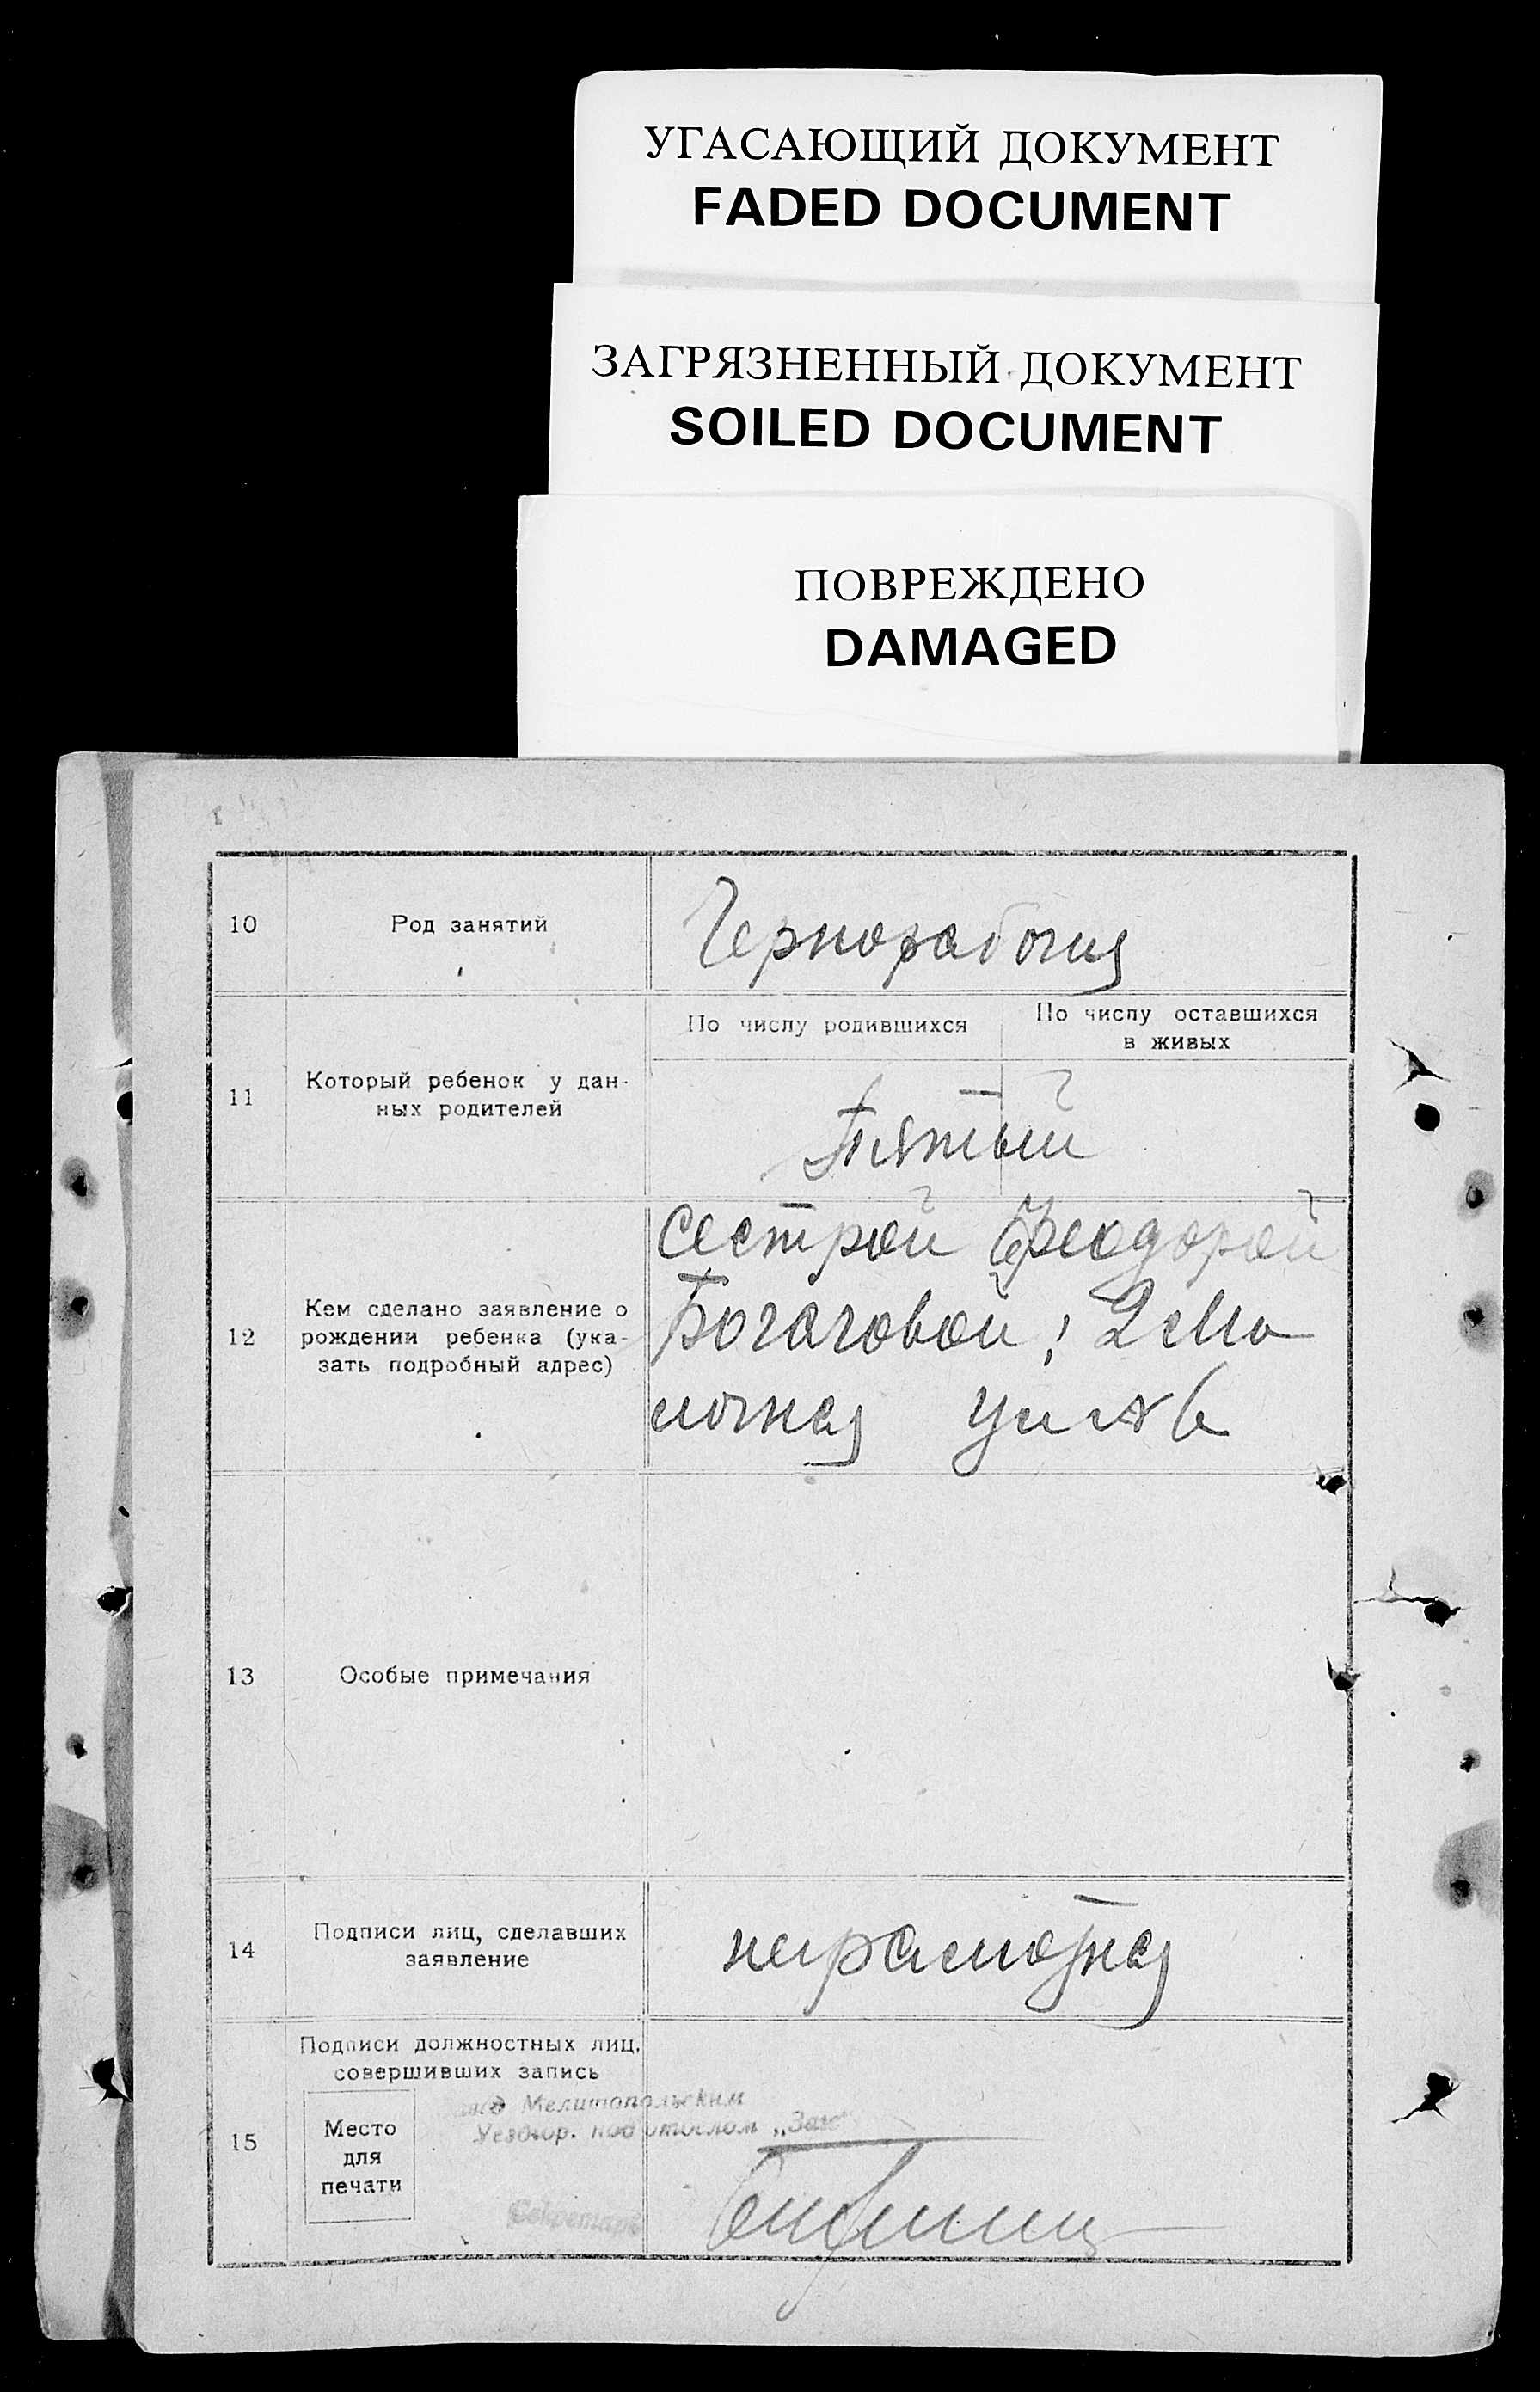 УГАСАЮЩИЙ ДОКУМЕНТ
FADED DOCUMENT
ЗАГРЯЗНЕННЫЙ ДОКУМЕНТ
SOILED DOCUMENT
ПОВРЕЖДЕНО
DAMAGED
10 Род занятий Чернорабочая
11 Который ребенок у дан-
ных родителей
По числу родившихся
По числу оставшихся
в живых
Пятый
12 Кем сделано заявление о
рождении ребенка (ука-
зать подробный адрес)
Сестрой Феодорой
13 Особые примечания
14 Подписи лиц, сделавших
заявление
неграмотная
15 Подписи должностных лиц,
совершивших запись
Место
для
печати
Мелитопольским
Уездгор. подотделом
Секретарь